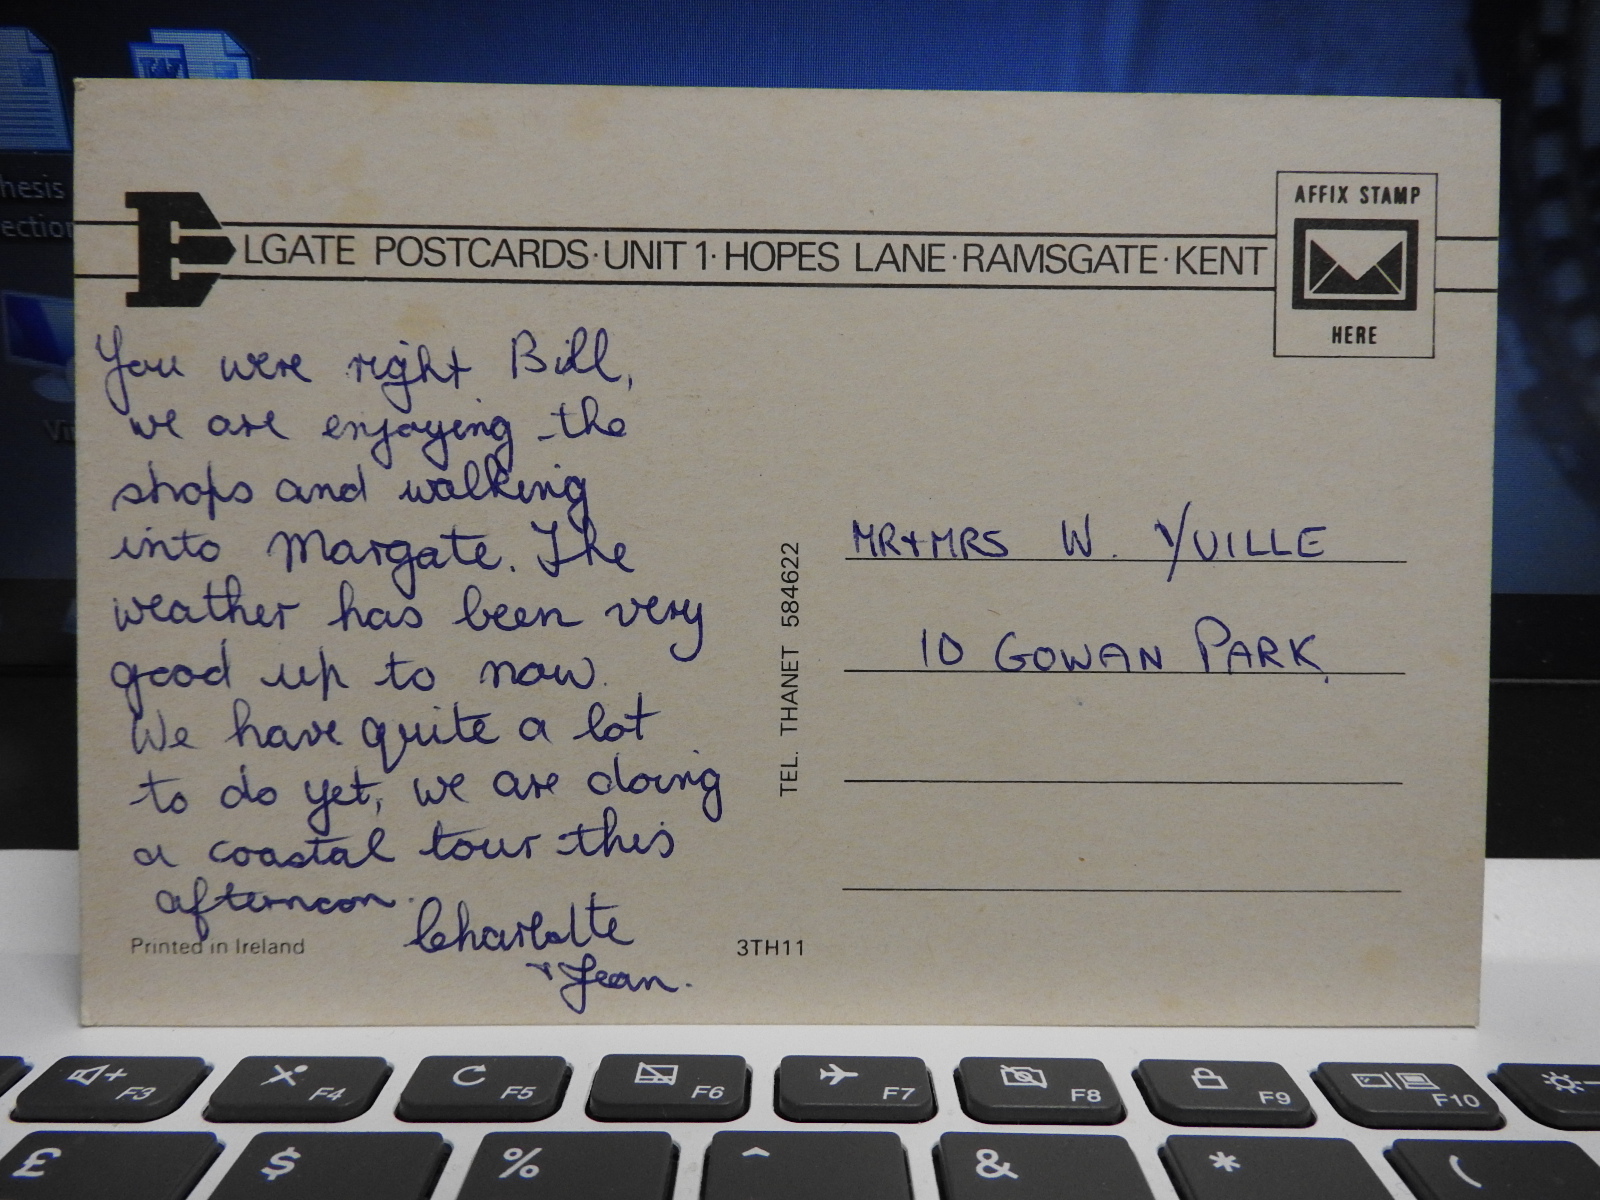 hesis
ection
ELGATE POSTCARDS·UNIT 1·HOPES LANE·RAMSGATE·KENT
AFFIX STAMP
HERE
You were right Bill,
we are enjoying the
shops and walking
into Margate. The
weather has been very
good up to now.
We have quite a lot
to do yet, we are doing
a coastal tour this
afternoon.
Charlotte
+ Jean.
Printed in Ireland
3TH11
TEL. THANET 584622
MR+MRS W. YUILLE
10 GOWAN PARK,
F3
F4
F5
F6
F7
F8
F9
F10
£
$
%
^
&
*
(